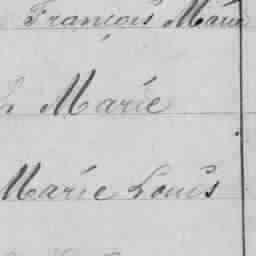 François Marie
Marie
Marie Louis